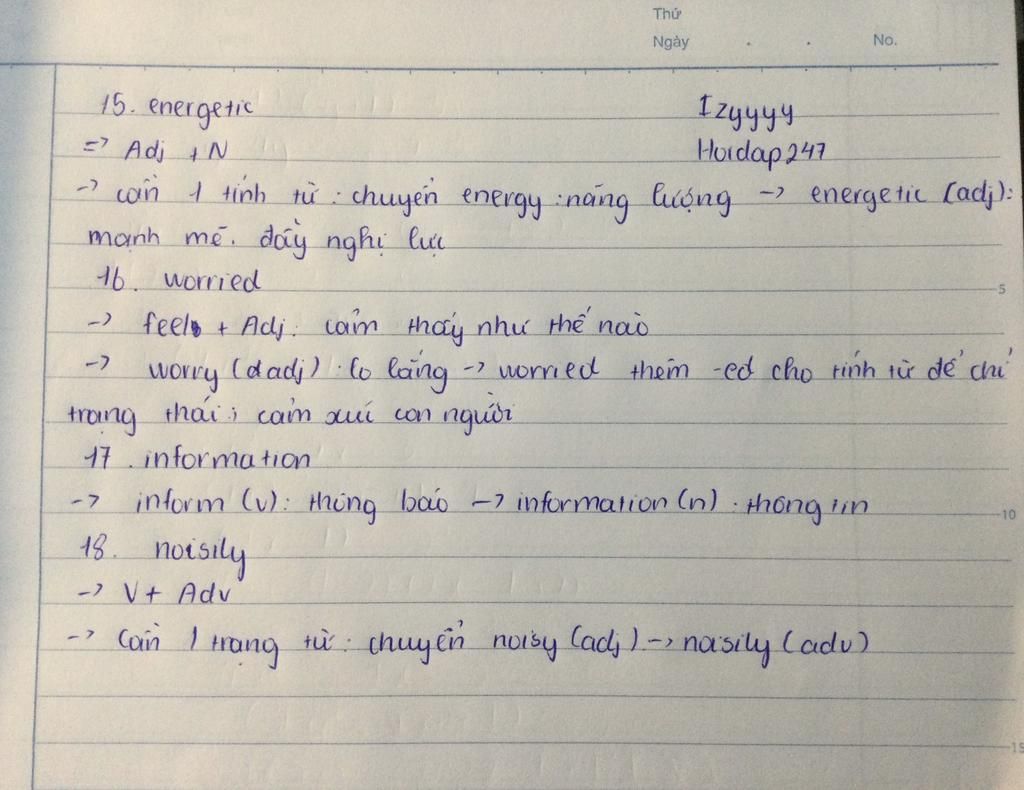 Thứ
Ngày . . No.
15. energetic Izyyyy
=> Adj + N Hoidap247
-> cần 1 tính từ : chuyển energy : năng lượng -> energetic (adj):
mạnh mẽ. đầy nghị lực
16. worried
-> feel + Adj: cảm thấy như thế nào
5
-> worry (adj) : lo lắng -> worried thêm -ed cho tính từ để chỉ
trạng thái, cảm xúc con người
17. information
-> inform (v): thông báo -> information (n) : thông tin
10
18. noisily
-> V + Adv
-> Cần 1 trạng từ : chuyển noisy (adj) -> noisily (adv)
15